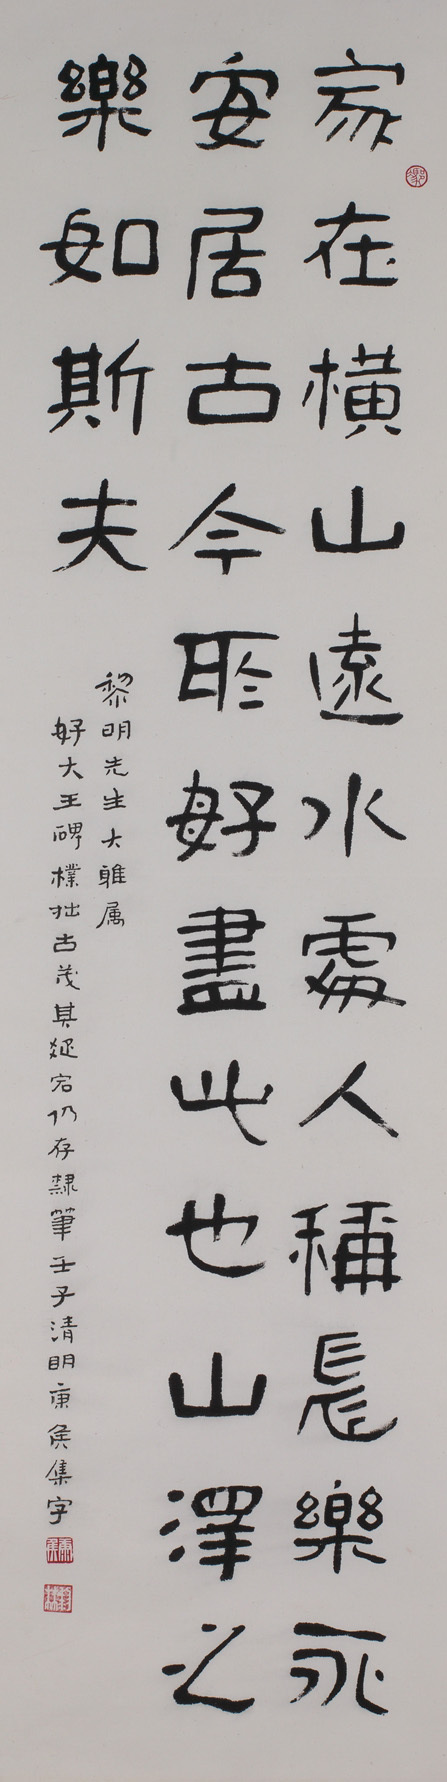 家在橫山遠水處人稱長樂永
安居古今所好盡此也山澤之
樂如斯夫
黎明先生大雅属
好大王碑樸拙古茂其宕仍存隸筆壬子清明康侯集字